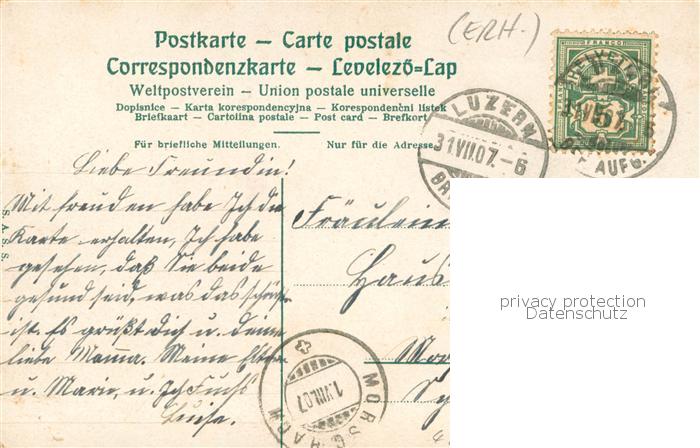 (ERH.)
Postkarte – Carte postale
Correspondenzkarte – Levelező-Lap
Weltpostverein – Union postale universelle
Dopisnice – Karta korespondencyjna – Korespondenční listek
Briefkaart – Cartolina postale – Post card – Brefkort
Für briefliche Mitteilungen.
Nur für die Adresse
FRANCO
HELVETIA
5
LUZERN
31.VII.07.-6
BR
AUFG.
Liebe Freundin!
Mit freuden habe Ich die
Karte erhalten, Ich habe
gesehen, daß Sie beide
gesund seid, was das schönste
ist. Es grüßt dich u. deine
liebe Mama. Meine Eltern
u. Marie, u. Ich
Luise.
Fräulein
Haus
S.A.S.S.
MORSCHACH
1.VIII.07
privacy protection
Datenschutz